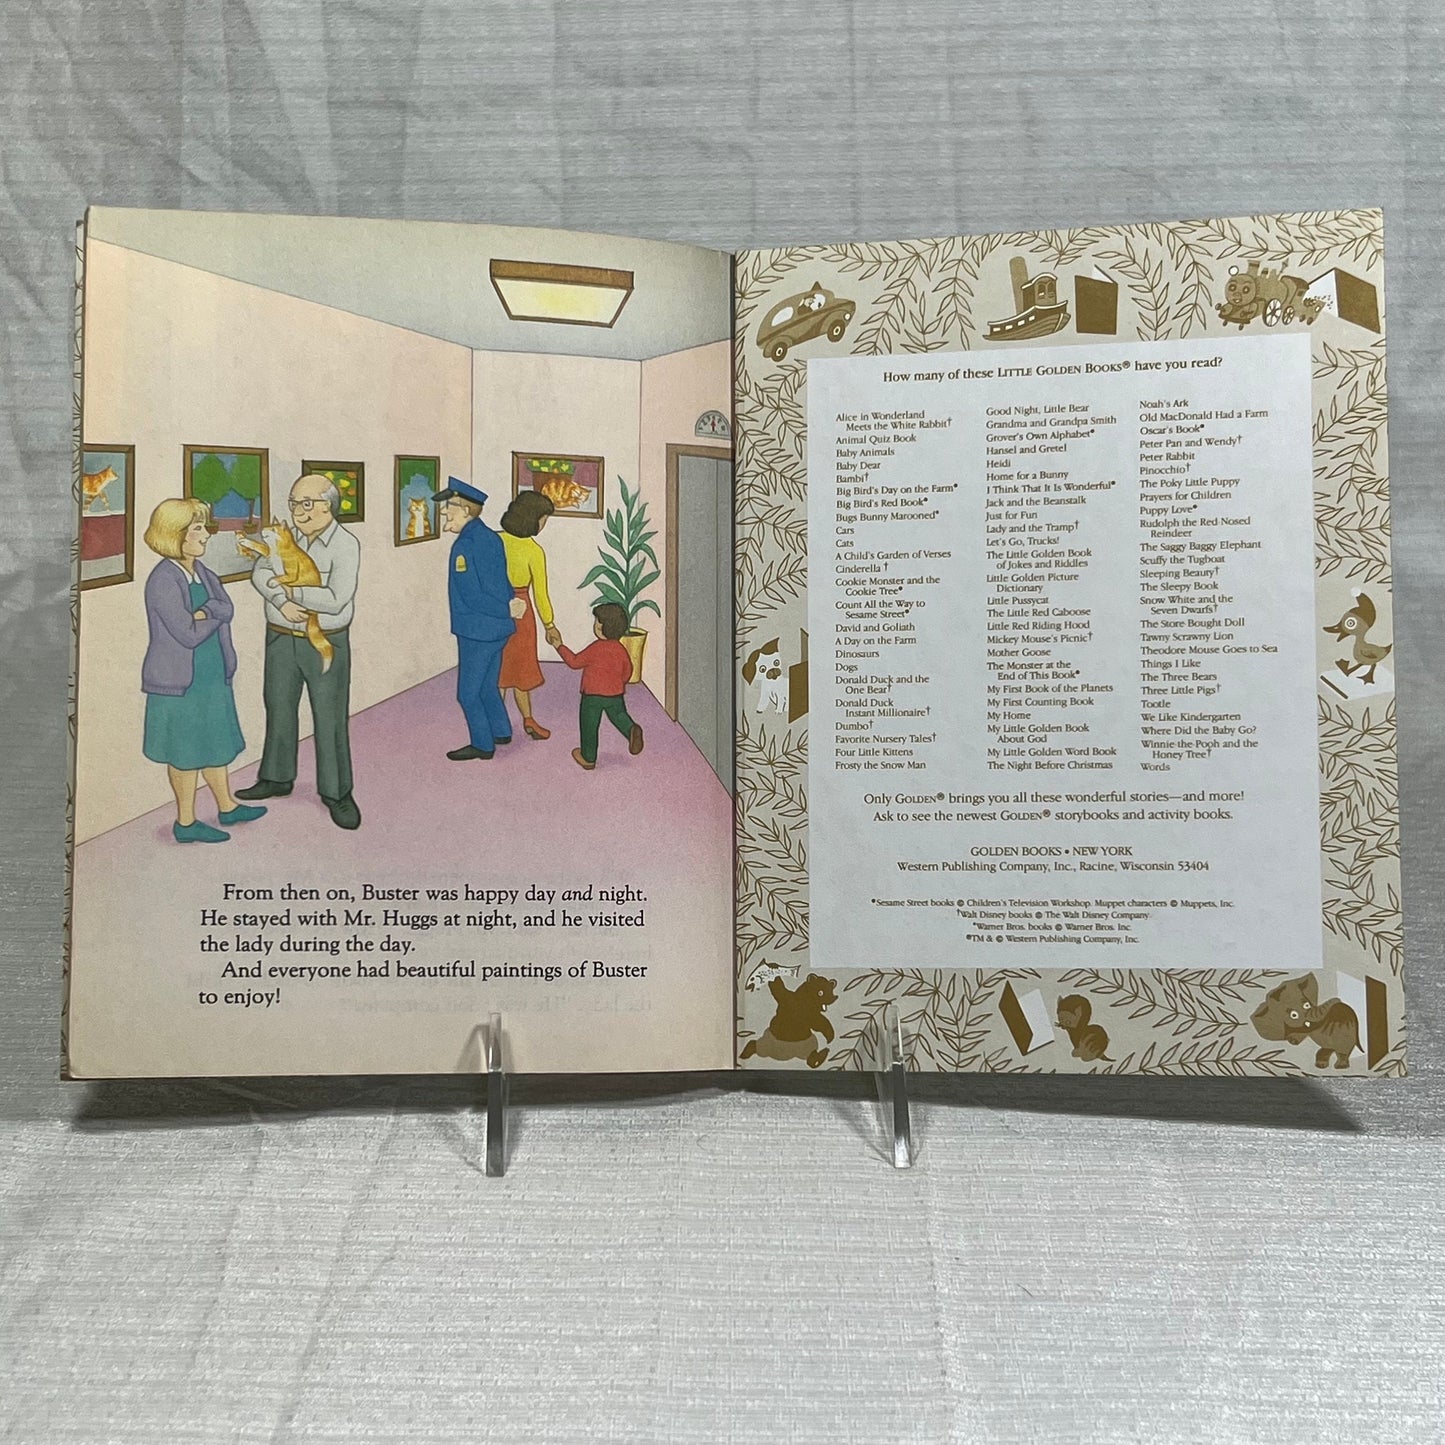 From then on, Buster was happy day and night.
He stayed with Mr. Huggs at night, and he visited
the lady during the day.
And everyone had beautiful paintings of Buster
to enjoy!
How many of these LITTLE GOLDEN BOOKS® have you read?
Alice in Wonderland
Meets the White Rabbit†
Animal Quiz Book
Baby Animals
Baby Dear
Bambi†
Big Bird's Day on the Farm*
Big Bird's Red Book*
Bugs Bunny Marooned*
Cars
Cats
A Child's Garden of Verses
Cinderella †
Cookie Monster and the
Cookie Tree*
Count All the Way to
Sesame Street*
David and Goliath
A Day on the Farm
Dinosaurs
Dogs
Donald Duck and the
One Bear†
Donald Duck
Instant Millionaire†
Dumbo†
Favorite Nursery Tales†
Four Little Kittens
Frosty the Snow Man
Good Night, Little Bear
Grandma and Grandpa Smith
Grover's Own Alphabet*
Hansel and Gretel
Heidi
Home for a Bunny
I Think That It Is Wonderful*
Jack and the Beanstalk
Just for Fun
Lady and the Tramp†
Let's Go, Trucks!
The Little Golden Book
of Jokes and Riddles
Little Golden Picture
Dictionary
Little Pussycat
The Little Red Caboose
Little Red Riding Hood
Mickey Mouse's Picnic†
Mother Goose
The Monster at the
End of This Book*
My First Book of the Planets
My First Counting Book
My Home
My Little Golden Book
About God
My Little Golden Word Book
The Night Before Christmas
Noah's Ark
Old MacDonald Had a Farm
Oscar's Book*
Peter Pan and Wendy†
Peter Rabbit
Pinocchio†
The Poky Little Puppy
Prayers for Children
Puppy Love*
Rudolph the Red-Nosed
Reindeer
The Saggy Baggy Elephant
Scuffy the Tugboat
Sleeping Beauty†
The Sleepy Book
Snow White and the
Seven Dwarfs†
The Store-Bought Doll
Tawny Scrawny Lion
Theodore Mouse Goes to Sea
Things I Like
The Three Bears
Three Little Pigs†
Tootle
We Like Kindergarten
Where Did the Baby Go?
Winnie-the-Pooh and the
Honey Tree†
Words
Only GOLDEN® brings you all these wonderful stories—and more!
Ask to see the newest GOLDEN® storybooks and activity books.
GOLDEN BOOKS • NEW YORK
Western Publishing Company, Inc., Racine, Wisconsin 53404
*Sesame Street books © Children's Television Workshop. Muppet characters © Muppets, Inc.
†Walt Disney books © The Walt Disney Company.
*Warner Bros. books © Warner Bros. Inc.
®TM & © Western Publishing Company, Inc.